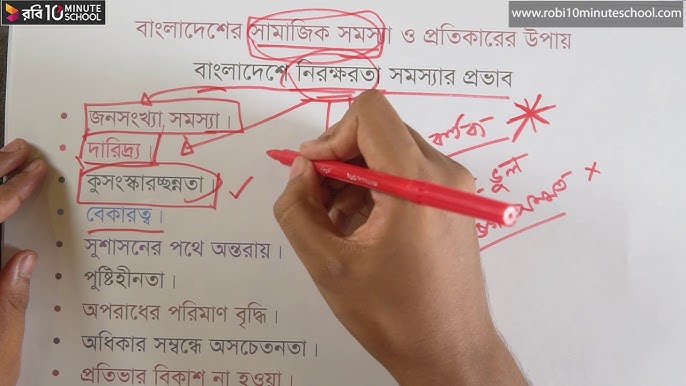 রবি 10 MINUTE SCHOOL
www.robi10minuteschool.com
বাংলাদেশের সামাজিক সমস্যা ও প্রতিকারের উপায়
বাংলাদেশে নিরক্ষরতা সমস্যার প্রভাব
জনসংখ্যা সমস্যা।
দারিদ্র্য।
কুসংস্কারচ্ছন্নতা
বেকারত্ব।
সুশাসনের পথে অন্তরায়।
পুষ্টিহীনতা।
অপরাধের পরিমাণ বৃদ্ধি।
অধিকার সম্বন্ধে অসচেতনতা।
প্রতিভার বিকাশ না হওয়া।
ভুল